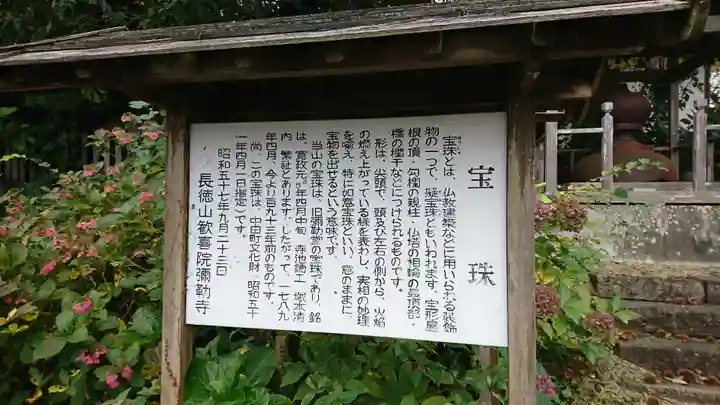 宝珠
宝珠とは、仏教建築などに用いられる装飾
物の一つで、擬宝珠ともいわれます。宝形屋
根の頂、勾欄の親柱、仏塔の相輪の最頂部、
橋の欄干などにつけられるものです。
形は、尖頭で、頭及び左右の側から、火焔
の燃え上がっている様を表わし、実相の妙理
を喩え、特に如意宝珠といい、意のままに
宝物を出せるという意味です。
当山の宝珠は、旧彌勒堂の宝珠であり、銘
は、寛政元年四月中旬 寺池鋳工 塚本清
内 繁社とあります。したがって、一七八九
年四月、今より百九十三年前のものです。
尚、この宝珠は、中田町文化財(昭和五十
一年四月一日指定)です。
昭和五十七年九月二十三日
長徳山歓喜院彌勒寺